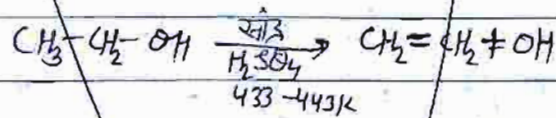 CH₃-CH₂-OH सांद्र H₂SO₄ → 433-443K CH₂=CH₂+OH